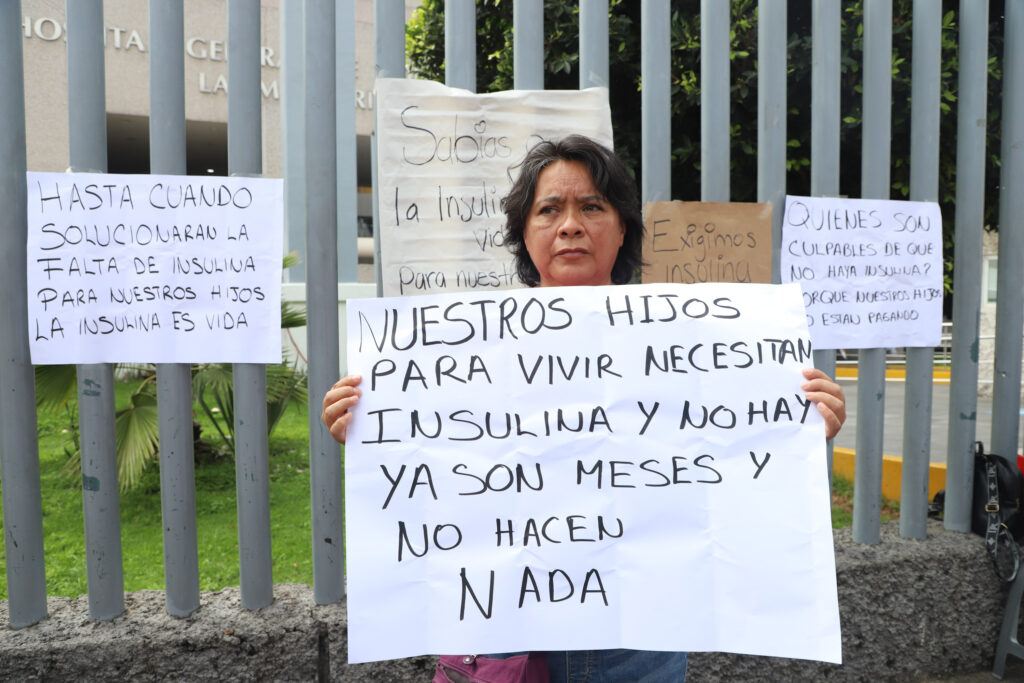 HOSPITAL GENERAL
LA
HASTA CUANDO
SOLUCIONARAN LA
FALTA DE INSULINA
PARA NUESTROS HIJOS
LA INSULINA ES VIDA
Sabías
la Insulin
vid
para nuestr
Exigimos
insulina
QUIENES SON
CULPABLES DE QUE
NO HAYA INSULINA?
PORQUE NUESTROS HIJOS
LO ESTAN PAGANDO
NUESTROS HIJOS
PARA VIVIR NECESITAN
INSULINA Y NO HAY
YA SON MESES Y
NO HACEN
NADA